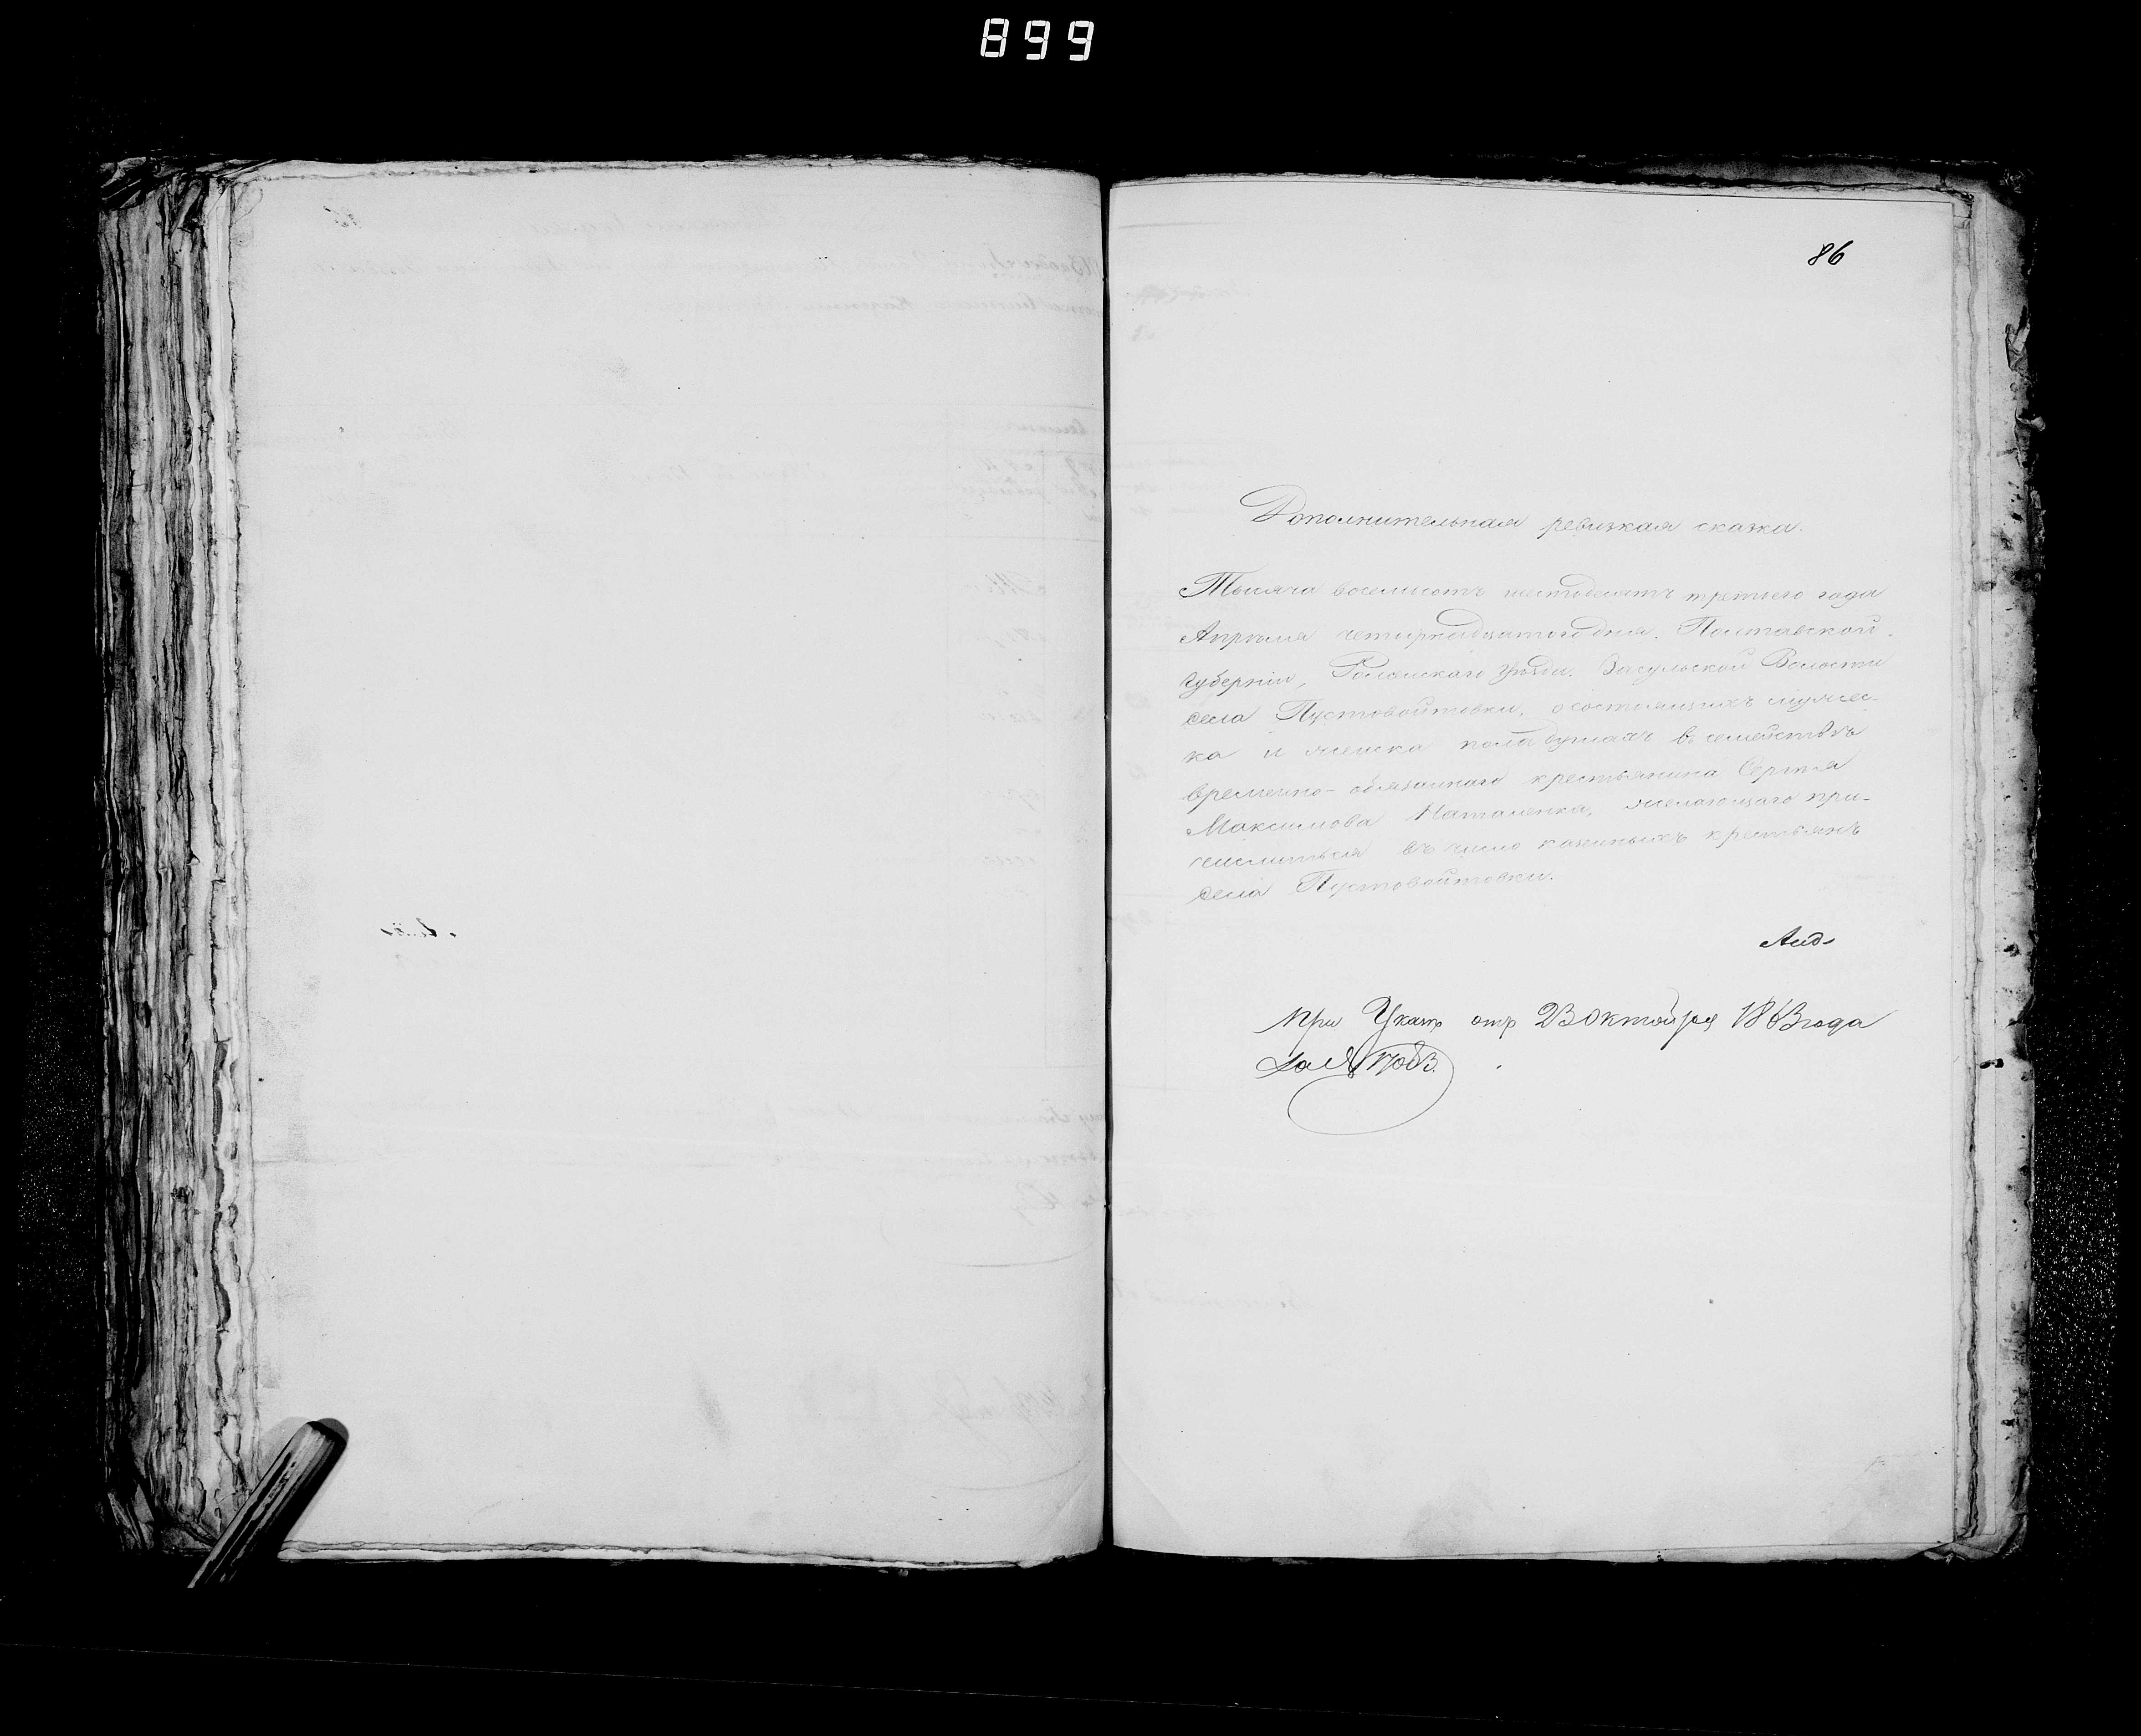 899
86
Дополнительная ревизкая сказка.
Тысяча восемьсотъ шестьдесятъ третьего года
Апрѣля четырнадцатого дня. Полтавской
губерніи, Роменскаго уѣзда. Засульской Волости
села Пустовойтовки, о состоящихъ мужес-
ка и женска пола душахъ въ семействѣ
временно-обязаннаго крестьянина Сергѣя
Максимова Наталенка, желающаго при-
числиться въ число казенныхъ крестьянъ
села Пустовойтовки.
при Указѣ отъ 23 октября 1863 года